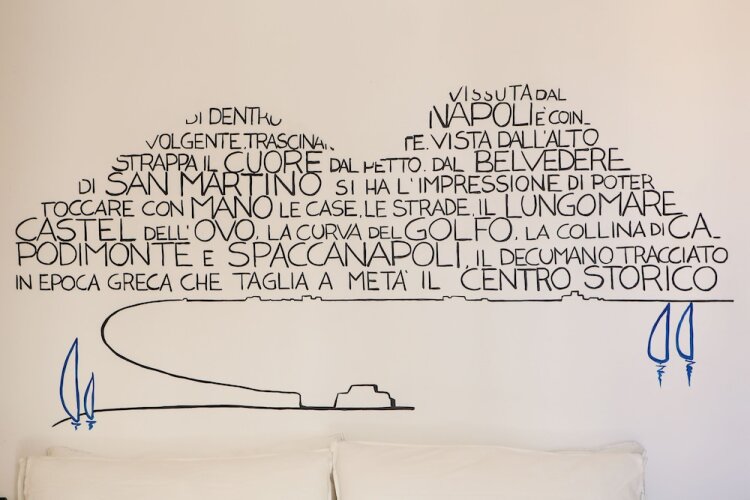 VISSUTA DAL
DI DENTRO NAPOLI È COIN_
VOLGENTE, TRASCINANTE. VISTA DALL'ALTO
STRAPPA IL CUORE DAL PETTO. DAL BELVEDERE
DI SAN MARTINO SI HA L'IMPRESSIONE DI POTER
TOCCARE CON MANO LE CASE, LE STRADE, IL LUNGOMARE
CASTEL DELL'OVO, LA CURVA DEL GOLFO, LA COLLINA DI CA_
PODIMONTE E SPACCANAPOLI, IL DECUMANO TRACCIATO
IN EPOCA GRECA CHE TAGLIA A METÀ IL CENTRO STORICO